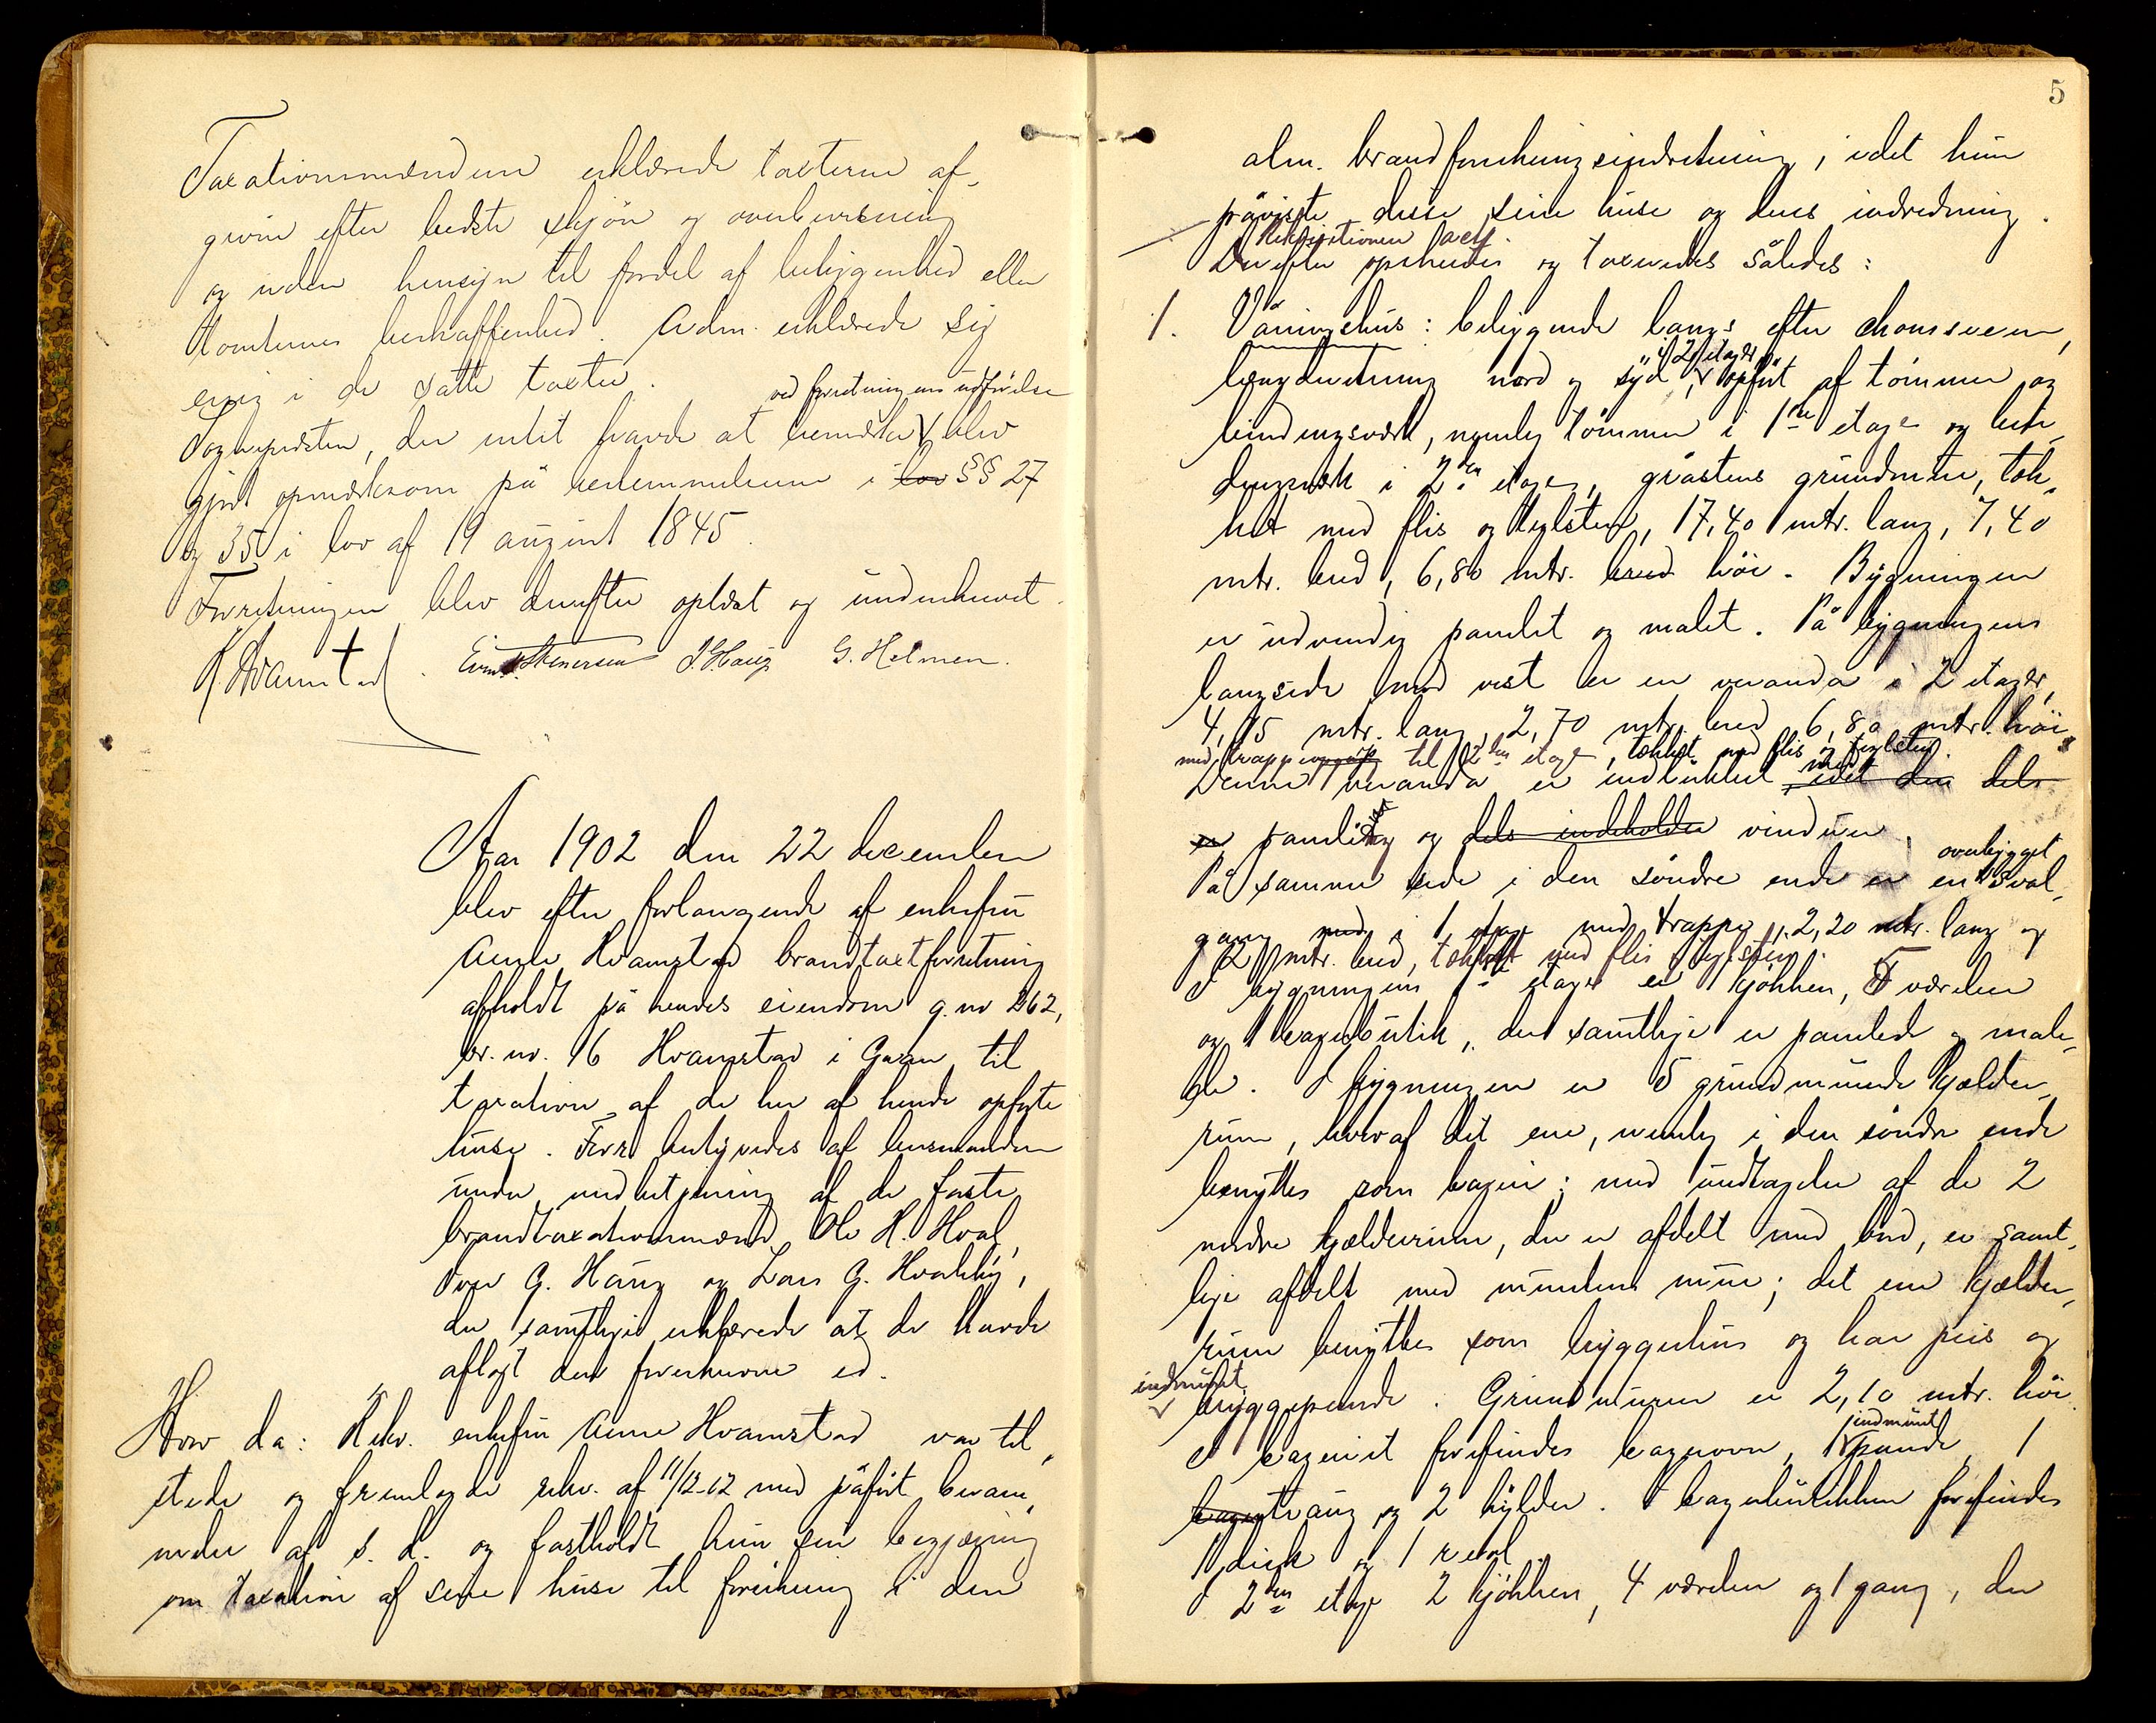 Taxationsmændene erklærede taxterne af-
givne efter bedste skjøn og overbevisning
og uden hensyn til fordel af beliggenhed eller
tomternes beskaffenhed. Adm. erklærede sig
enig i de satte taxter.
ved forretningens udførelse
Sogneprästen, der intet havde at bemerke blev
gjort opmerksom på bestemmelserne i lov §§ 27
og 35 i lov af 19 august 1845.
Forretningen blev derefter oplæst og underskrevet.
K. Hvamstad. Even Stenersen J. Haug G. Helmen.
Aar 1902 den 22 december
blev efter forlangende af enkefru
Anne Hvamstad brandtaxtforretning
afholdt på hendes eiendom g.no 262,
br. no. 16 Hvamstad i Gran til
taxation af de her af hende opførte
huse. Forr. bestyredes af lensmanden
under medbetjening af de faste
brandtaxationsmænd Ole H. Hval,
Iver G. Haug og Lars G. Hvaleby,
der samtlige erklærede at de havde
aflagt den foreskrevne ed.
Hvor da: Rekv. enkefru Anne Hvamstad var til-
stede og fremlagde rekv. af 11/12-02 med påført beram-
melse af s. d. og fastholdt hun sin begjæring
om taxation af sine huse til forsikring i den
5
alm. brandforsikringsindretning, idet hun
påviste disse sine huse og deres indredning.
Rekvisitionen acll.
Derefter opmåltes og taxeredes således:
1. Våningshus: beliggende langs efter chausseen,
i 2 etager
længderetning nord og syd, opført af tømmer og
bindingsværk, nemlig tømmer i 1ste etage og bin-
dingsverk i 2den etage, gråstens grundmur, tæk-
ket med flis og teglsten, 17,40 mtr. lang, 7,40
mtr. bred, 6,80 mtr. bred høi. Bygningen
er udvendig panelet og malet. På bygningens
langside mod vest er en veranda i 2 etager,
4,15 mtr. lang, 2,70 mtr. bred, 6,80 mtr. høi
med trappe til 2den etage, tækket med flis og teglsten.
med
Denne veranda er indlukket idet den dels
er paneling og dels indeholder vinduer.
overbygget
På samme side i den søndre ende er en sval-
gang med i 1 etage med trappe, 2,20 mtr. lang og
2 mtr. bred, tækket med flis og teglsten.
I bygningens 1ste etage er 1 kjøkken, 5 værelser
og 1 bagerbutik, der samtlige er panelede og male-
de. I bygningen er 5 grundmurede kjælder-
rum, hvoraf det ene, nemlig i den søndre ende
benyttes som bageri; med undtagelse af de 2
nordre kjælderrum, der er afdelt med bord, er samt-
lige afdelt med murstens mure; det ene kjælder-
rum benyttes som bryggerhus og har peis og
indmuret
bryggepande. Grundmuren er 2,10 mtr. høi.
indmuret
I bageriet forefindes bagerovn, 1 pande, 1
bager traug og 2 hylder. I bagerbutikken forefindes
1 disk og 1 reol.
I 2den etage 2 kjøkken, 4 værelser og 1 gang, der